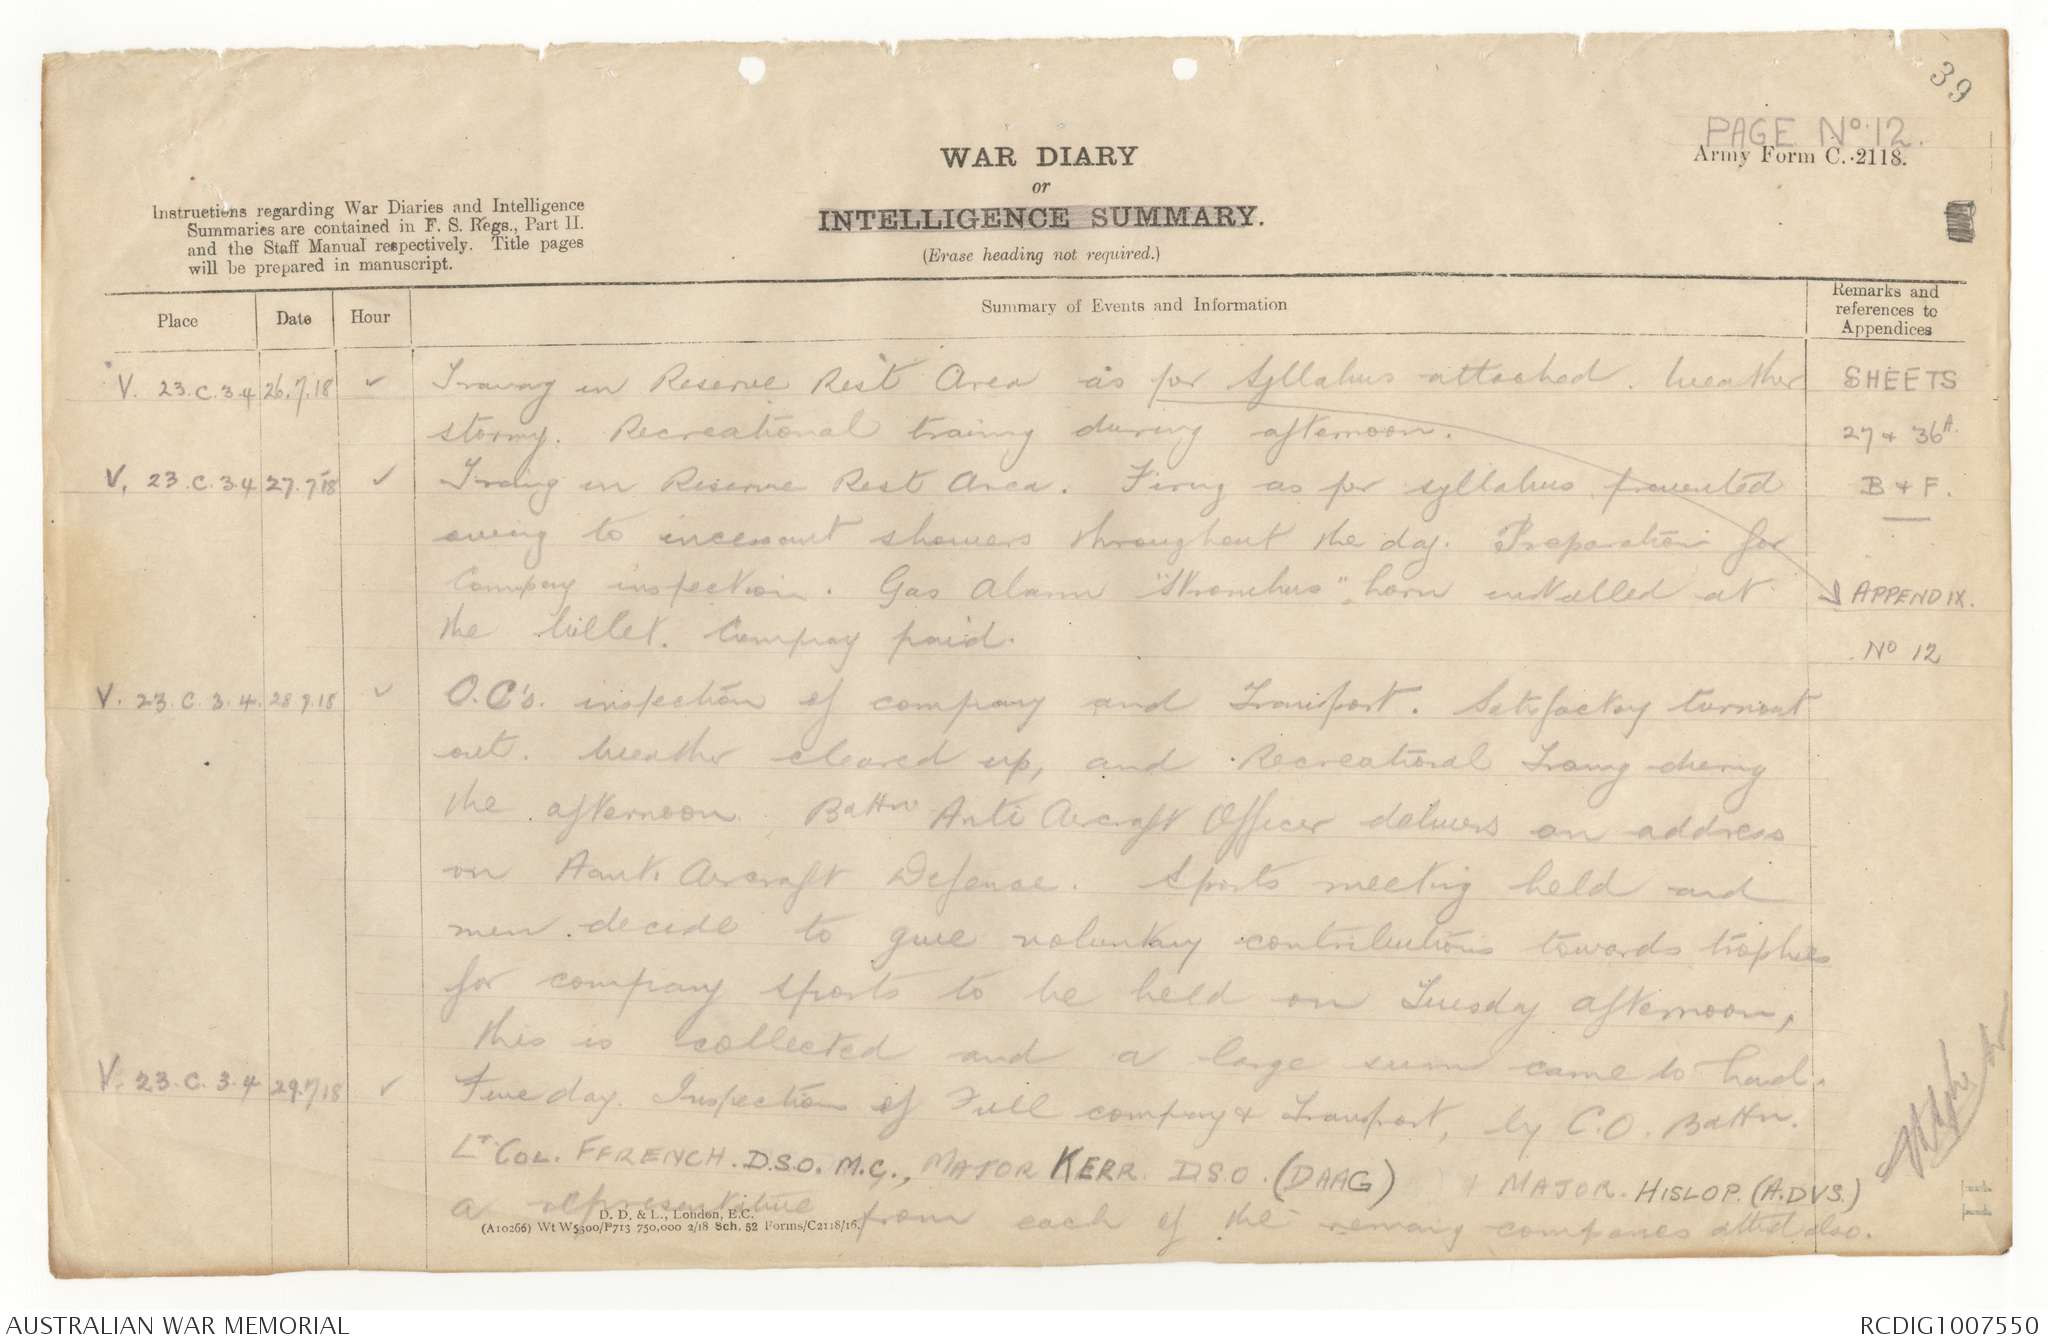 39
PAGE No. 12.
Army Form C. 2118.
WAR DIARY
or
INTELLIGENCE SUMMARY.
(Erase heading not required.)
Instructions regarding War Diaries and Intelligence
Summaries are contained in F. S. Regs., Part II.
and the Staff Manual respectively. Title pages
will be prepared in manuscript.
Place Date Hour Summary of Events and Information Remarks and references to Appendices
V. 23.C.3.4 26.7.18 ✓ Traing in Reserve Rest Area as per Syllabus attached. Weather SHEETS
stormy. Recreational traing during afternoon. 27 + 36A.
V. 23.C.3.4 27.7.18 ✓ Traing in Reserve Rest Area. Firing as per syllabus prevented B + F.
owing to incessant showers throughout the day. Preparation for
Company inspection. Gas Alarm "Strombus" horn installed at APPENDIX.
the billet. Company paid. No 12
V. 23.C.3.4. 28.7.18 ✓ O.C's. inspection of company and Transport. Satisfactory turnout
out. Weather cleared up, and Recreational Traing during
the afternoon. Battn Anti Aircraft Officer delivers an address
on Aanti Aircraft Defense. Sports meeting held and
men decide to give voluntary contributions towards trophies
for company sports to be held on Tuesday afternoon,
this is collected and a large sum came to hand.
V. 23.C.3.4 29.7.18 ✓ Fine day. Inspection of Full company & Transport, by C.O. Battn.
Lt COL. FFRENCH. D.S.O. M.C., MAJOR KERR D.S.O. (DAAG) MAJOR. HISLOP. (A.DVS.)
a representitive from each of the remaing companies attnd also.
D. D. & L., London, E.C.
(A10266) Wt W5300/P713 750,000 2/18 Sch. 52 Forms/C2118/16.
AUSTRALIAN WAR MEMORIAL RCDIG1007550